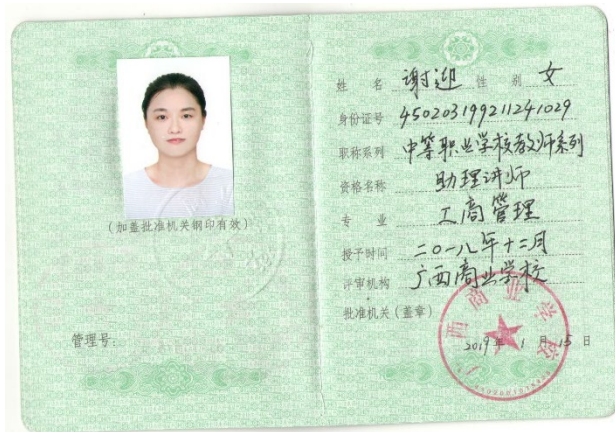 (加盖批准机关钢印有效)
管理号:
姓 名 谢迎 性 别 女
身份证号 450203199211241029
职称系列 中等职业学校教师系列
资格名称 助理讲师
专 业 工商管理
授予时间 二〇一八年十二月
评审机构 广西商业学校
批准机关(盖章)
广西商业学校
2019年 1 月 15 日